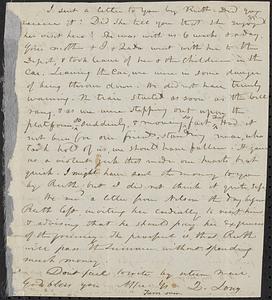 I sent a letter to you by Ruth. Did you
receive it? Did she tell you that she enjoyed
her visit here? She was with us 6 weeks & a day.
Your mother & I & Sada went with her to the
Depot, & took leave of her & the children in the
Car. Leaving the Car, we were in some danger
of being thrown down. We did not have timely
warning. The train started as soon as the bell
rang, & as we were stepping out upon the
platform so suddenly, & moving so fast, had it
not been for our friend, standing near, who
took hold of us, we should have fallen. It gave
us a violent jerk that made our hearts beat
quick. I might have sent the money to you
by Ruth, but I did not think it quite safe.
We had a letter from Nelson the day before
Ruth left inviting her cordially to visit him
& promising that he should pay her expenses
of the journey. The prospect is that Ruth
will pass the Summer without spending
much money.
Don't fail to write by return mail
God bless you Aff. Yr. D. Long
Turn over